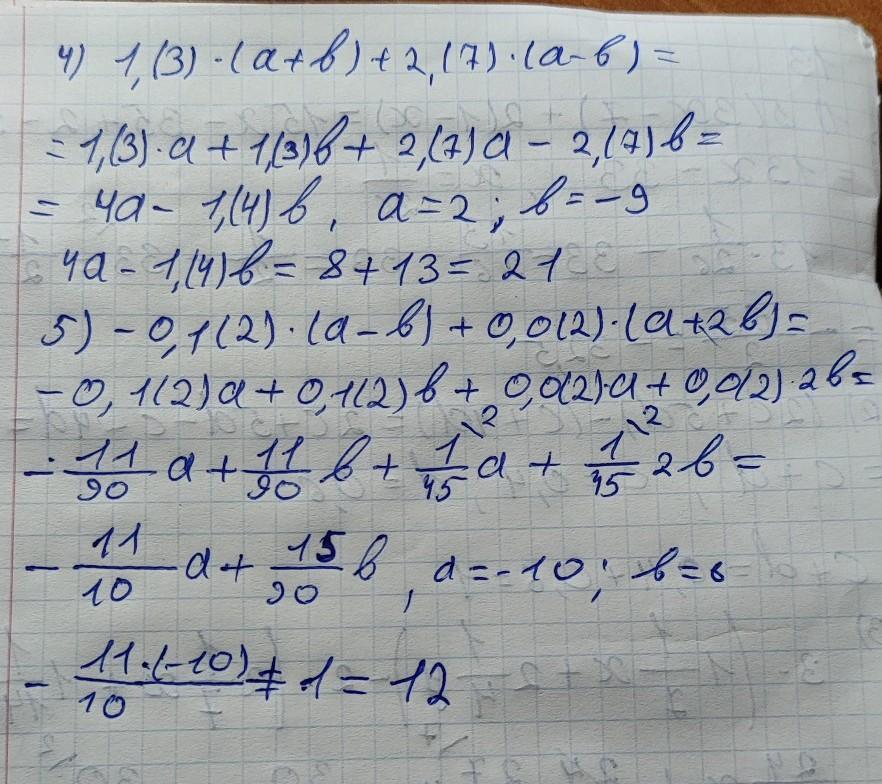 4) 1,(3)·(a+b)+2,(7)·(a-b)=
=1,(3)·a+1,(3)b+2,(7)a-2,(7)b=
= 4a-1,(4)b, a=2; b=-9
4a-1,(4)b=8+13=21
5) -0,1(2)·(a-b)+0,0(2)·(a+2b)=
-0,1(2)a+0,1(2)b+0,0(2)·a+0,0(2)·2b=
-11/90 a+11/90 b+1/45\2 a+1/45\2 2b=
-11/10 a+15/90 b, a=-10; b=6
-11·(-10)/10 + 1=12